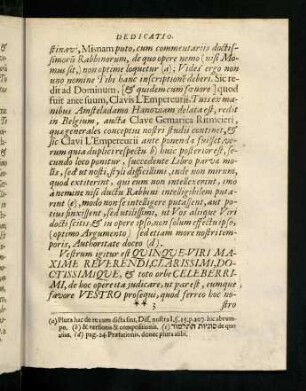 DEDICATIO.
stinæ, Misnam puto, cum commentariis doctis-
simorū Rabbonorum, de quo opere nemo (nisi Mo-
mus sit,) non optime loquetur (a); Vides ergo non
uno nomine Tibi hanc inscriptionē deberi. Sic re-
dit ad Dominum, [& quidem cum fænore] quod
fuit ante suum, Clavis L'Empereurii. Tuis ex ma-
nibus Amsteladamo Hanoviam delata est, redit
in Belgium, aucta Clave Gemarica Ritmeieri,
quæ generales conceptus nostri studii continet, &
sic Clavi L'Empereurii ante ponenda fuisset, ve-
rum quia duplici respectu b) huic posterior est, se-
cundo loco ponitur, succedente Libro parva mo-
lis, sed ut nosti, styli difficilimi, inde non mirum,
quod extiterint, qui eum non intellexerint, imo
à nemine nisi ductu Rabbini intelligibilem puta-
rint (c), modo non se intelligere putâsent, aut po-
tius finxissent, sed utilissimi, ut Vos alique Viri
docti scitis, & in opere ipso, non solum effectu ipso,
(optimo Argumento) sed etiam more nostri tem-
poris, Authoritate doceo (d).
Vestrum igitur est QUINQUE-VIRI MA-
XIME REVERENDI, CLARISSIMI, DO-
CTISSIMIQUE, & toto orbe CELEBERRI-
MI, de hoc opere ita judicare, ut par est, eumque
favore VESTRO prosequi, quod ferreo hoc no-
3 stro
(a) Plura hac de re cum dicta sint, Diss. nostra I, §. 15. p. 207. hic abrum-
po. (b) & versionis & compositionis. (c) de quo
alias. (d) pag. 24. Præfationis. donec plura alibi.